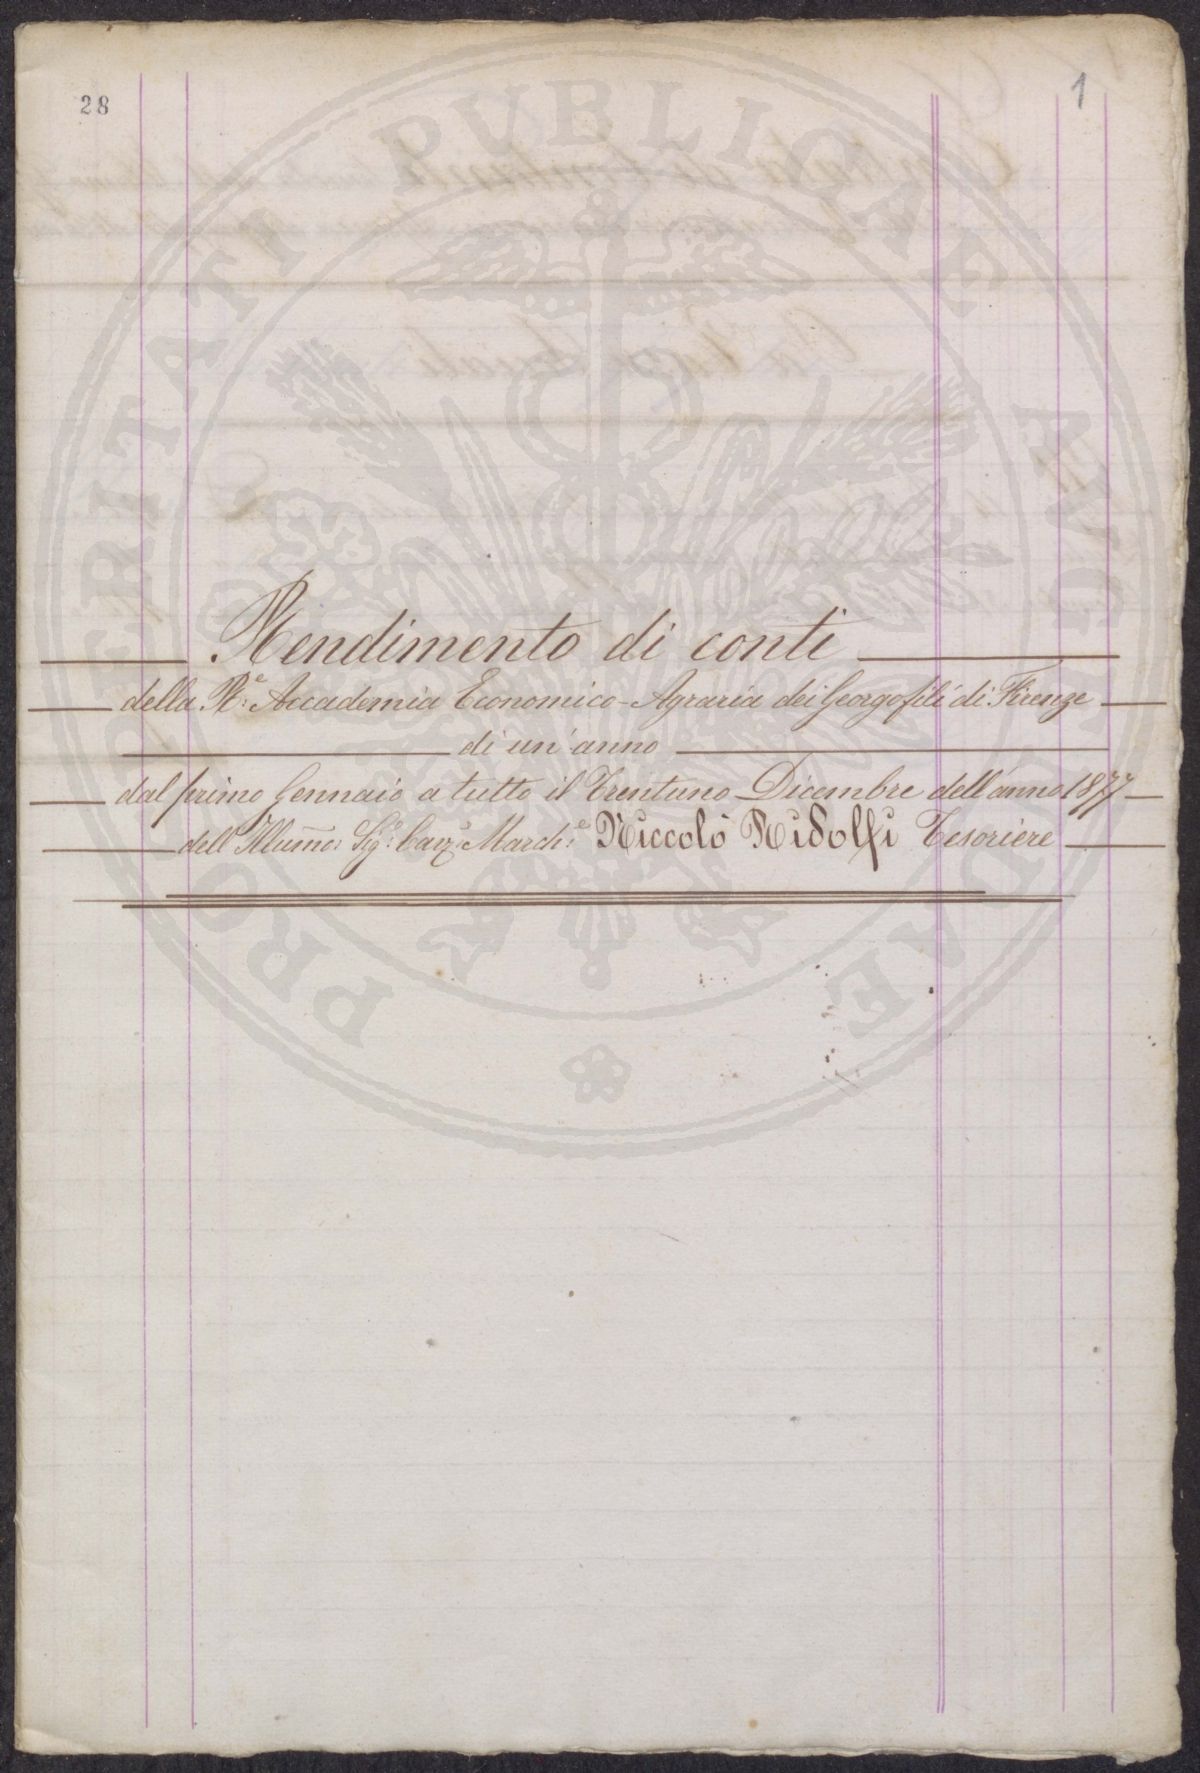 28
1
PROSPERITATI PUBLICAE AVGENDAE
Rendimento di conti
della R.e Accademia Economico-Agraria dei Georgofili di Firenze
di un'anno
dal primo Gennaio a tutto il Trentuno Dicembre dell'anno 1877
dell'Illumo: Sigr. Cavr. March.e Niccolò Ridolfi Tesoriere